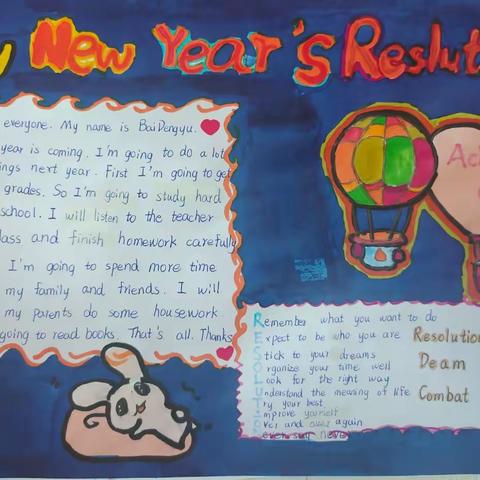 y New Year's Reslut
everyone. My name is BaiDengyu.
year is coming. I'm going to do a lot
ings next year. First I'm going to get
grades. So I'm going to study hard
school. I will listen to the teacher
lass and finish homework carefully
I'm going to spend more time
my family and friends. I will
my parents do some housework
going to read books. That's all. Thanks
Ac
Remember what you want to do
Expect to be who you are
Stick to your dreams
Organize your time well
Look for the right way
Understand the meaning of life
Try your best
Improve yourself
Over and over again
Never say never
Resolution
Deam
Combat